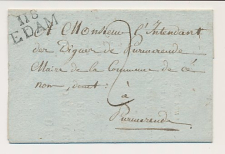 118
EDAM
A Monsieur l'Intendant
des Digues de Purmerende
Maire de la Commune de ce
nom, devant: )
à
Purmerende